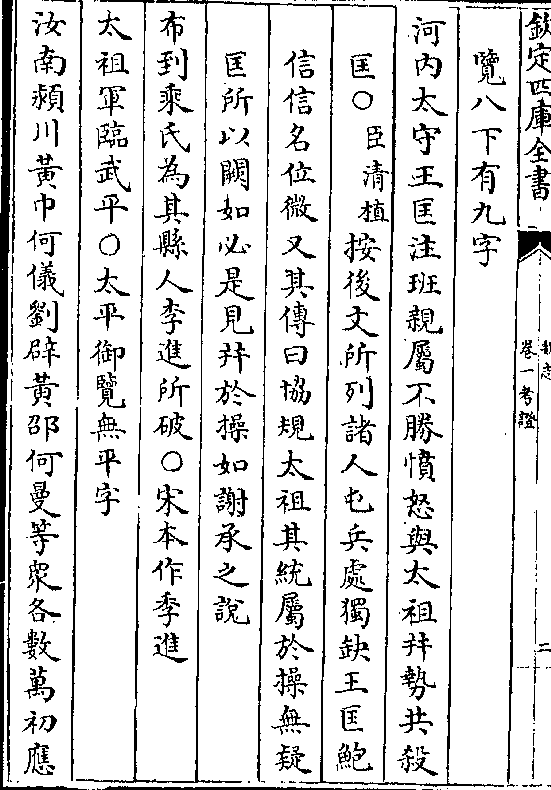 欽定四庫全書
魏志
卷一考證
二
覽八下有九字
河内太守王匡注班親屬不勝憤怒與太祖幷勢共殺
匡○臣清植按後文所列諸人屯兵處獨缺王匡鮑
信信名位微又其傳曰協規太祖其統屬於操無疑
匡所以闕如必是見幷於操如謝承之說
布到乘氏為其縣人李進所破○宋本作季進
太祖軍臨武平○太平御覽無平字
汝南潁川黃巾何儀劉辟黃邵何曼等衆各數萬初應